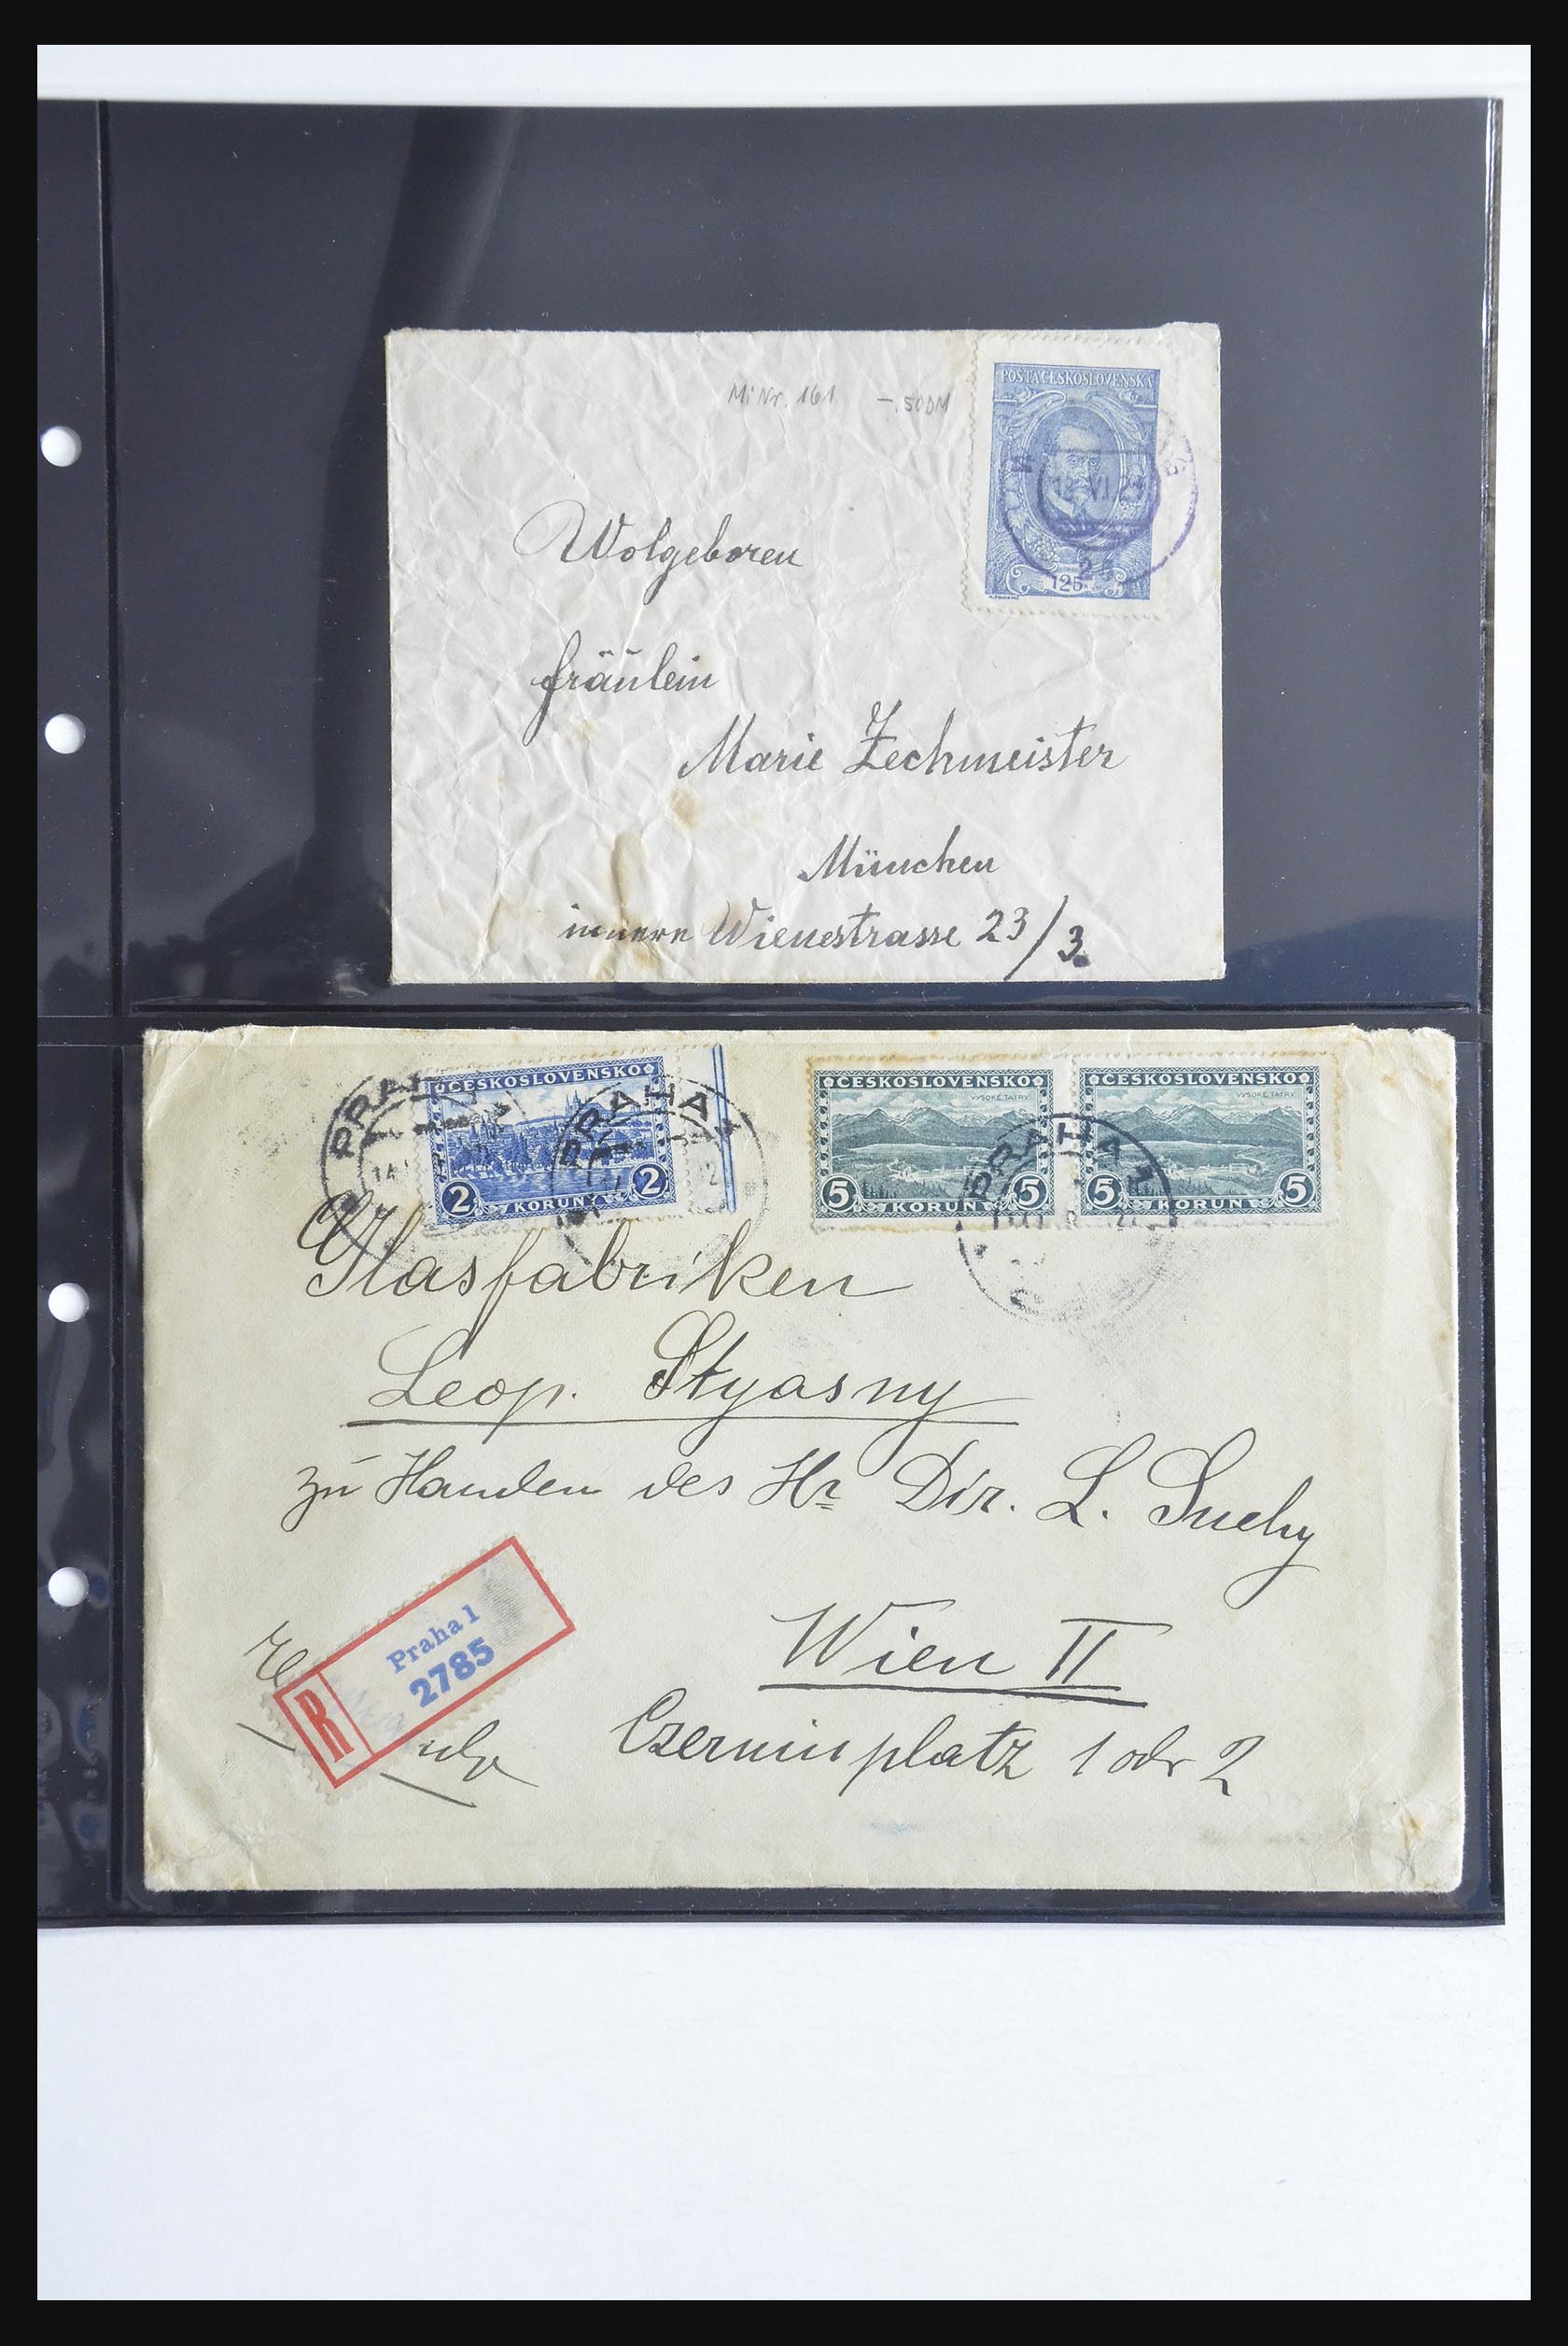 MiNr. 161 -.50DM
POSTA CESKOSLOVENSKA
12 VI 2
125
Wolgeboren
fräulein
Marie Zechmeister
München
innere Wienestrasse 23/3.
PRAHA
ČESKOSLOVENSKO
2 KORUNY 2
PRAHA 1
ČESKOSLOVENSKO
VYSOKÉ TATRY
5 KORUN 5
ČESKOSLOVENSKO
VYSOKÉ TATRY
5 KORUN 5
PRAHA 1
Glasfabriken
Leop. Styasny
zu Handen des Hr Dir. L. Suchy
R Praha 1
2785
Wien II
Czerninplatz 1 odr 2